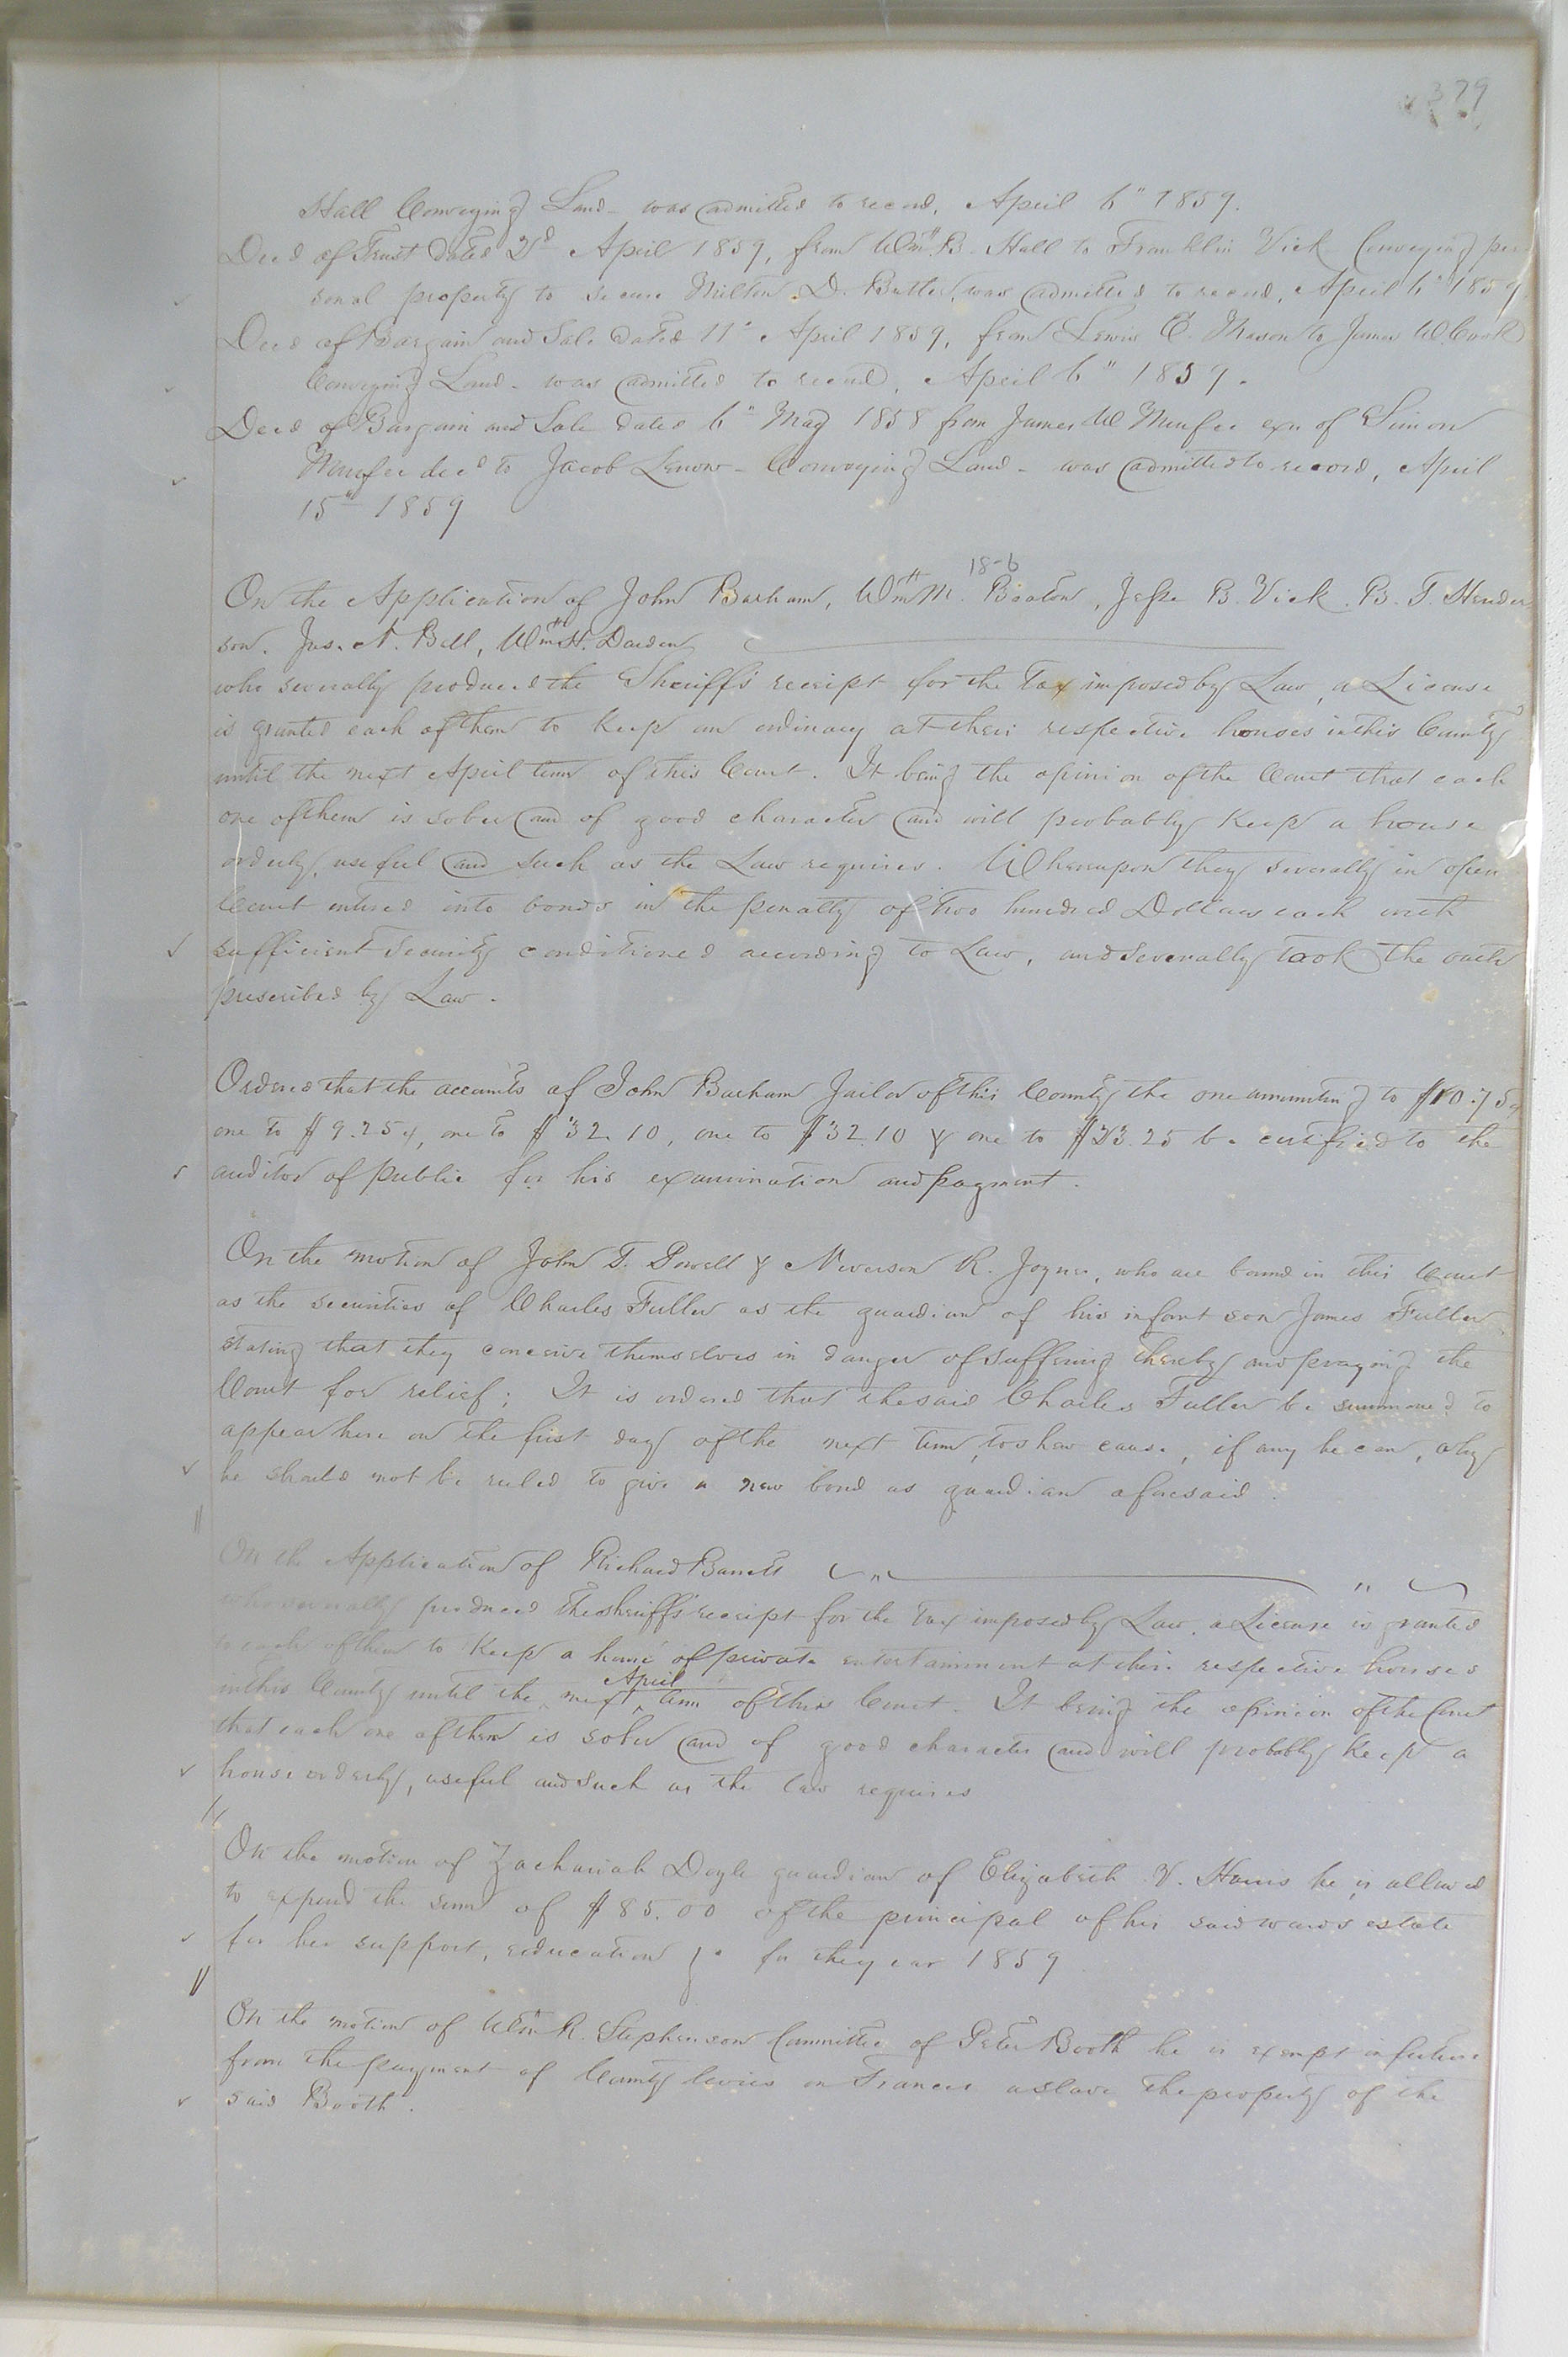 379
Hall Conveying Land - was admitted to record, April 6" 1859.
Deed of Trust dated 2d April 1859, from Wm. B. Hall to Franklin Vick Conveying per
sonal property to secure Milton D. Butler, was admitted to record, April 6" 1859
Deed of Bargain and Sale dated 11" April 1859, from Lewis E. Mason to James W. Cook
Conveying Land - was admitted to record, April 6" 1859.
Deed of Bargain and Sale dated 6" May 1858 from James W Murfee exr of Simon
Murfee decd to Jacob Lenow - Conveying Land - was admitted to record, April
15" 1859
18-6
On the Application of John Barham, Wm M. Beaton, Jesse B. Vick. B. T. Hender
son. Jas. N. Bell, Wm H. Darden
who severally produced the Sheriff's receipt for the Tax imposed by Law, a License
is granted each of them to keep an ordinary at their respective houses in this County
until the next April term of this Court. It being the opinion of the Court that each
one of them is sober and of good character and will probably keep a house
orderly, useful and such as the Law requires. Whereupon they severally in open
Court entered into bonds in the penalty of two hundred Dollars each with
sufficient Security conditioned according to Law, and severally took the oath
prescribed by Law.
Ordered that the accounts of John Barham Jailor of this County the one amounting to $10.75
one to $9.25, one to $32.10, one to $32.10 & one to $33.25 be certified to the
auditor of public for his examination and payment.
On the motion of John T. Powell & Neverson R. Joyner, who are bound in this Court
as the securities of Charles Fuller as the guardian of his infant son James Fuller
stating that they conceive themselves in danger of suffering thereby and praying the
Court for relief; It is ordered that the said Charles Fuller be summoned to
appear here on the first day of the next term, to shew cause, if any he can, why
he should not be ruled to give a new bond as guardian aforesaid.
On the Application of Richard Barrett " "
who severally produced the sheriff's receipt for the Tax imposed by Law, a License is granted
to each of them to keep a house of private entertainment at their respective houses
April
in this County until the next term of this Court. It being the opinion of the Court
that each one of them is sober and of good character and will probably keep a
house orderly, useful and such as the law requires
On the motion of Zachariah Doyle guardian of Elizabeth V. Harris he is allowed
to expend the sum of $85.00 of the principal of his said wards estate
for her support, education &c for the year 1859
On the motion of Wm R. Stephenson Committee of Peter Booth he is exempt in future
from the payment of County levies on Frances a slave the property of the
said Booth.